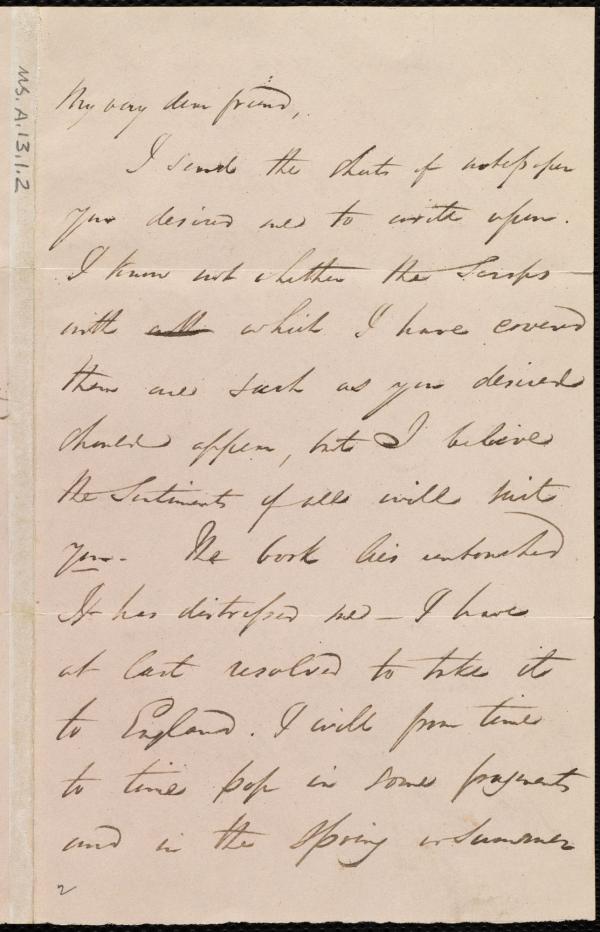 MS. A.13.1.2
My very dear friend,
I send the sheets of notepaper
you desired me to write upon.
I know not whether the Scraps
with which I have covered
them are such as you desired
should appear, but I believe
the Sentiments of all will suit
you. The book lies untouched
It has distressed me - I have
at last resolved to take it
to England. I will from time
to time pop in some fragments
and in the Spring or Summer
2